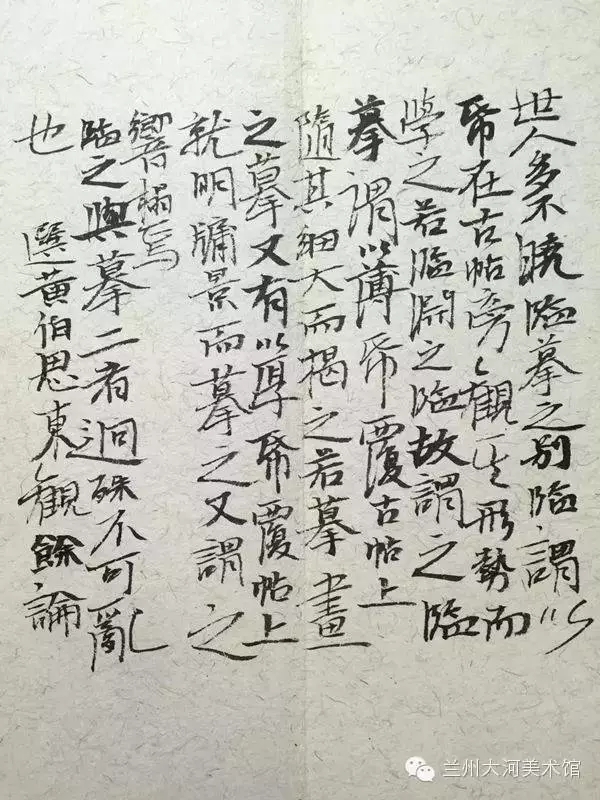 世人多不曉臨摹之別臨謂以
帋在古帖旁觀其形勢而
學之若臨淵之臨故謂之臨
摹謂以薄帋覆古帖上
隨其細大而搨之若摹畫
之摹又有以厚帋覆帖上
就明牖景而摹之又謂之
響搨焉
臨之與摹二者迥殊不可亂
也
選黃伯思東觀餘論
兰州大河美术馆